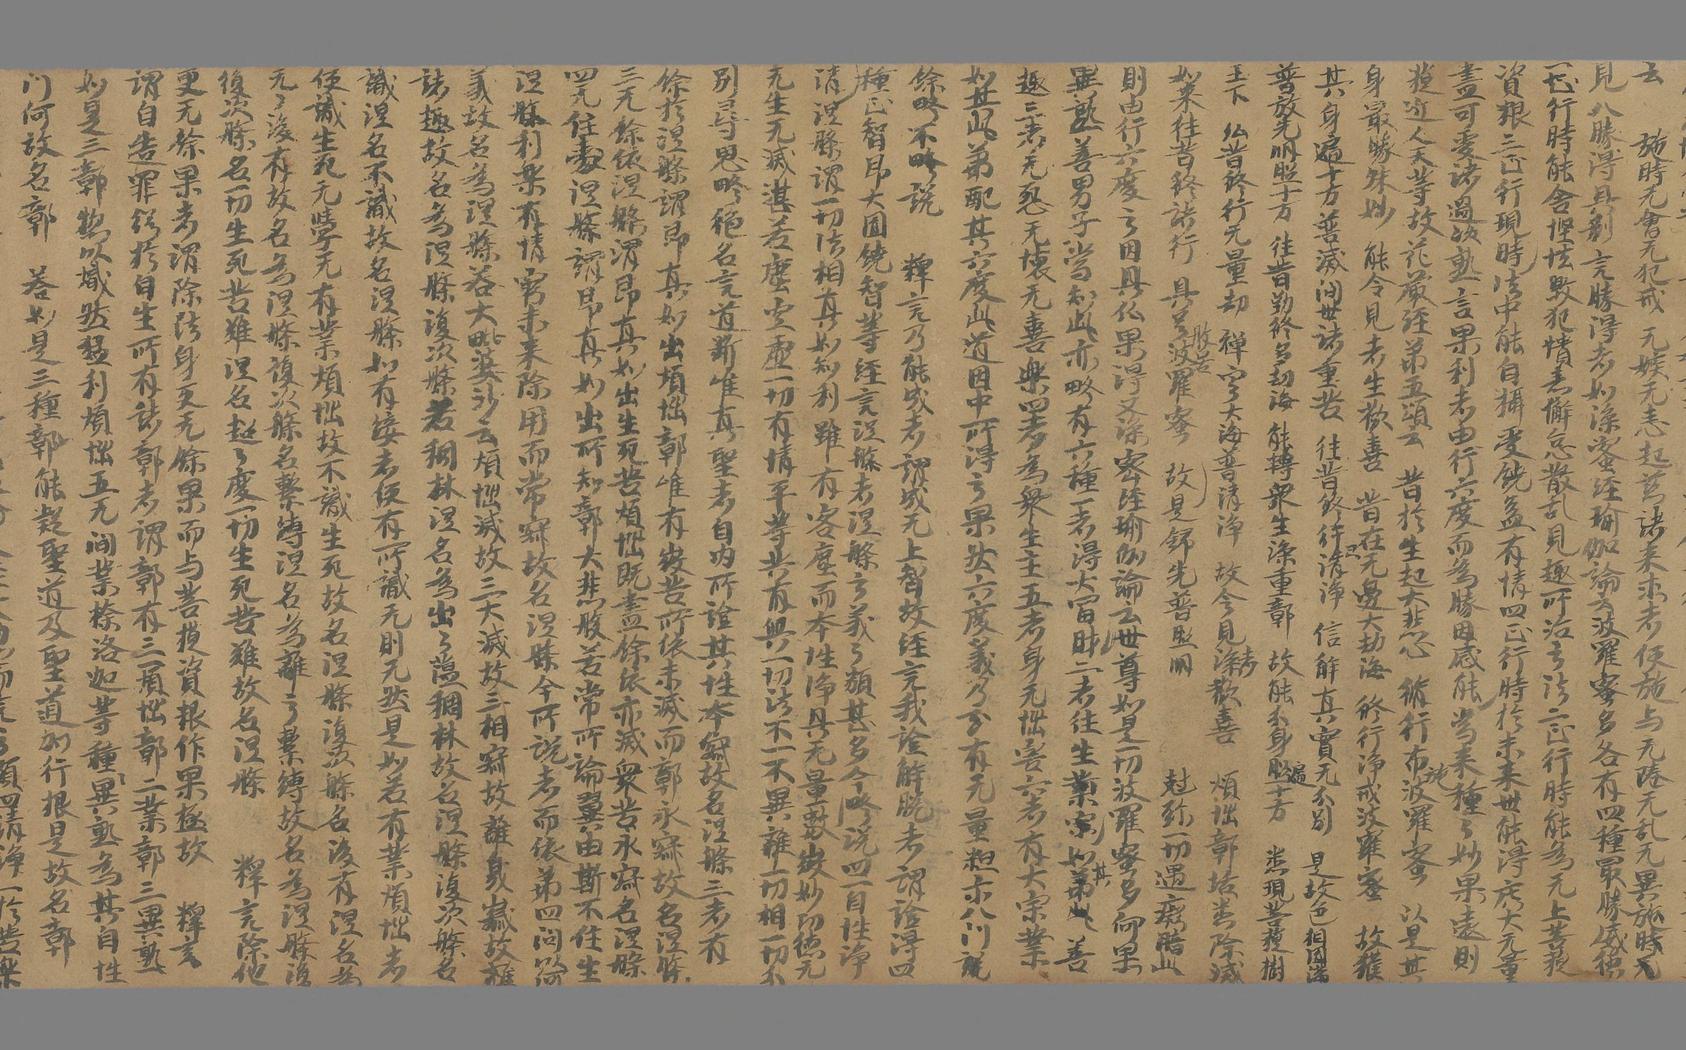 去 施時无會无犯戒 无嫉无恚起諸來求者便施与无陰无乱无異施時无
見八勝得具判 言勝得者如深蜜經瑜伽論云波羅蜜多各有四種冣勝威德
一正行時能舍慳恡毀犯憒恚懈怠散乱見趣所治之法二正行時能為无上菩提
資粮三正行現時法中能自攝受饒益有情四正行時於未來世能得廣大无量
盡可愛諸過故熟言果利者由行六度而為勝因感能當來種々妙果遠則
提近人天等故花嚴經第五頌云 昔於生起大悲心 修行布施波羅蜜 以是其
身冣勝殊妙 能令見者生歡喜 昔在无邊大劫海 修行淨戒波羅蜜 故獲
其身遍十方普滅世諸重苦 往昔修行忍清淨 信解真實无分別 是故色相圓滿
普放光明照十方 往昔勤修多劫海 能轉眾生深重鄣 故能分身遍十方 悉現菩提樹
王下 仏昔修行无量劫 禪定大海普清淨 故令見者深歡喜 煩惱鄣垢悉除滅
如來往昔修諸行 具足般若波羅蜜 故是舒光普照明 尅殄一切遇癡暗此
則由行六度之因具仏果得又深密經瑜伽論云世尊如是一切波羅蜜多何果
異熟善男子當知此亦略有六種一者得大富財二者往生善
趣三者无怨无壞无喜樂四者為眾生主五者身无惱害六者有大宗葉
如其此第配其六度此道因中所得之果然六度義乃有无量粗示八门說
餘略不略說 釋言乃能成者謂成无上智故經言我證解脫者謂證得四
種正智昂大圓鏡智等經言涅槃者涅槃之義々類甚多今略說四一自性淨
清涅槃謂一切法相真如知利雖有客塵而本性淨具无量數微妙功德无
无生无滅湛若虛空一切有情平等共有與一切法不一不異離一切相一切分
別尋思路絕名言道斷唯真聖者自內所證其性本寂故名涅槃二者有
餘於涅槃謂昂真如出煩惱鄣唯有微苦所依未滅而鄣永寂故名涅槃
三无餘依涅槃謂昂真如出生死苦煩惱既盡餘依亦滅眾苦永寂名涅槃
四无住處涅槃謂昂真如出所知鄣大悲般若常所翼由斯不住生
涅槃利樂有情窮未來除用而常寂故名涅槃今所說者而依第四問以何
義故名為涅槃荅大毗婆沙云煩惱滅故三火滅故三相寂故離臭穢故離
諸趣故名為涅槃復次槃名稠林涅名為出々蕴稠林故名涅槃復次槃名
識涅名不識故名涅槃如有綾者便有所識无則无然是如若有業煩惱者
便識生死无學无有業煩惱故不識生死故名涅槃復次槃名後有涅名為
无々後有故名為涅槃復次槃名繫縛涅名為離々繫縛故名為涅槃復
復次槃名一切生死苦難涅名超々度一切生死苦難故名涅槃 釋言除他
更无餘果者謂除法身更无餘果而与菩提資粮作果極故 釋言
謂自告罪餘於自生所有諸鄣者謂鄣有三煩惱鄣二業鄣三異熟
如是三鄣物以熾然猛利煩惱五无间業捺洛迦等種異熟為其自性
门何故名鄣 荅如是三種鄣能礙聖道及聖道加行根是故名鄣